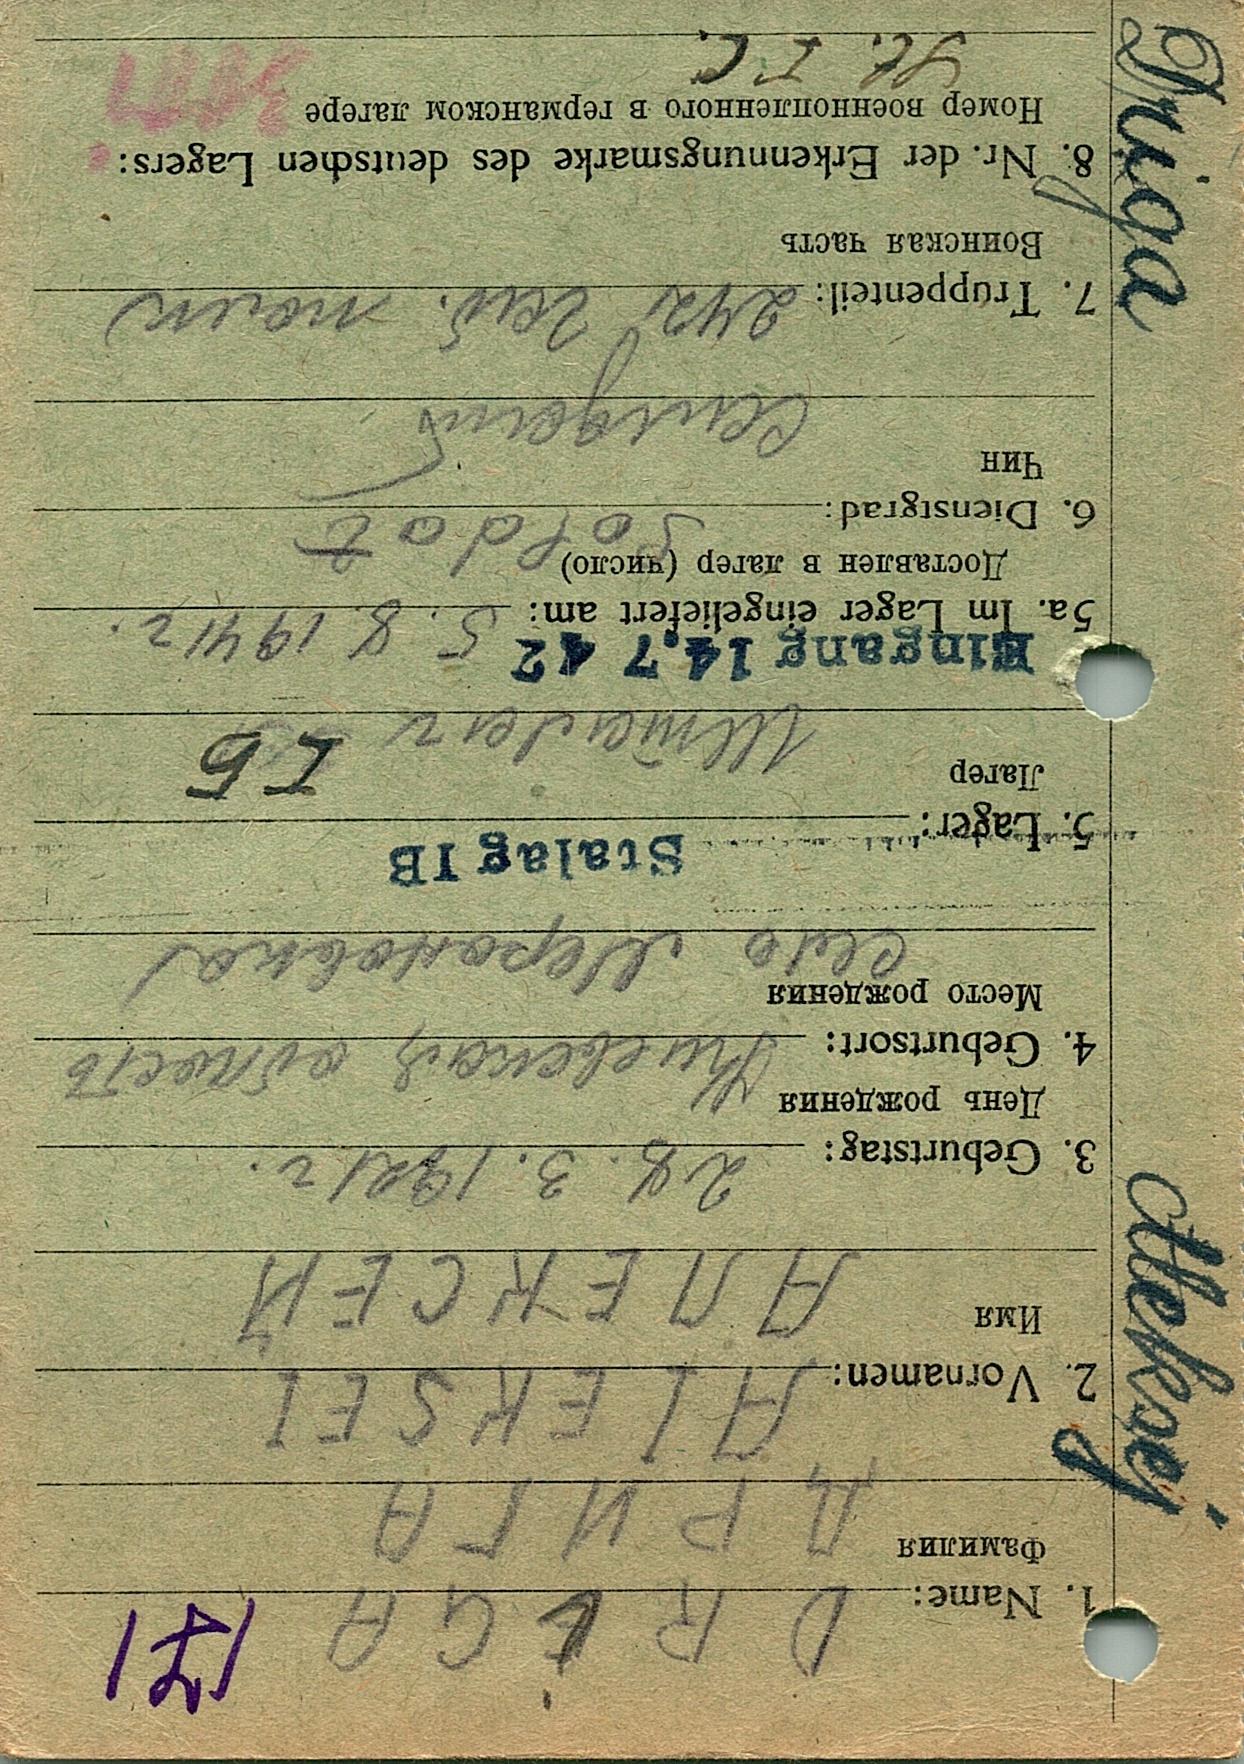 171
1. Name: DRIGA
Фамилия
ДРИГА
2. Vornamen: ALEKSEI
Имя
АЛЕКСЕЙ
3. Geburtstag: 28. 3. 1921 г.
День рождения
4. Geburtsort: Киевская область
Место рождения
село
Stalag IB
5. Lager:
Лагер
IБ
Eingang 14.7 42
5a. Im Lager eingeliefert am: 5. 8. 1941 г.
Доставлен в лагер (число)
Soldat
6. Dienstgrad:
Чин
7. Truppenteil: 242
Воинская часть
8. Nr. der Erkennungsmarke des deutschen Lagers:
Номер военнопленного в германском лагере
St. I C.
Driga, Aleksej